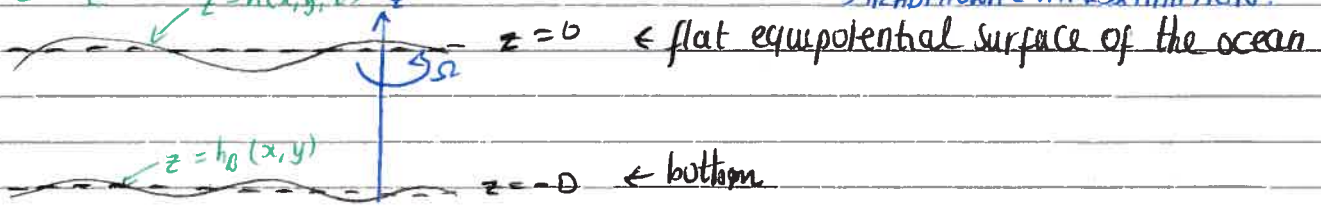 z = 0 ← flat equipotential surface of the ocean
Ω
z = h_B (x, y)
z = -D ← bottom